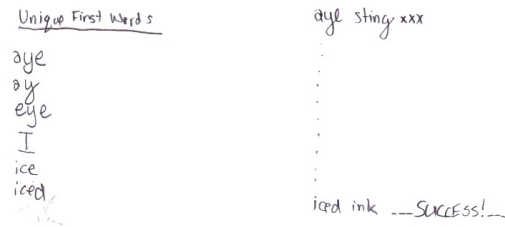 Unique First Words
aye
ay
eye
I
ice
iced
aye sting xxx
iced ink __SUCCESS!__